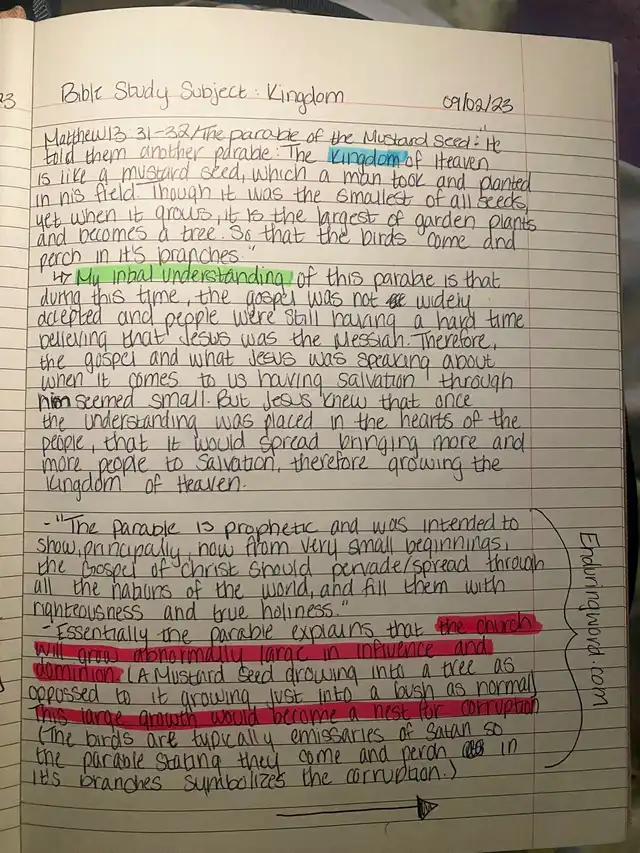 23
Bible Study Subject: Kingdom
09/02/23
Matthew 13 31-32/The parable of the Mustard Seed: "He
told them another parable: The Kingdom of Heaven
is like a mustard seed, which a man took and planted
in his field. Though it was the smallest of all seeds,
yet when it grows, it is the largest of garden plants
and becomes a tree. So that the birds come and
perch in it's branches."
↳ My inital understanding of this parable is that
during this time, the gospel was not widely
accepted and people were still having a hard time
believing that Jesus was the Messiah. Therefore,
the gospel and what Jesus was speaking about
when it comes to us having salvation through
him seemed small. But Jesus knew that once
the understanding was placed in the hearts of the
people, that it would spread bringing more and
more people to Salvation, therefore growing the
Kingdom of Heaven.
- "The parable is prophetic and was intended to
show, principally, how from very small beginnings,
the Gospel of Christ should pervade/spread through
all the nations of the world, and fill them with
righteousness and true holiness."
- Essentially the parable explains that the church
will grow abnormally large in influence and
dominion (A Mustard Seed growing into a tree as
opposed to it growing just into a bush as normal)
This large growth would become a nest for corruption
(The birds are typically emissaries of Satan so
the parable stating they come and perch in
it's branches symbolizes the corruption.)
Enduringword.com